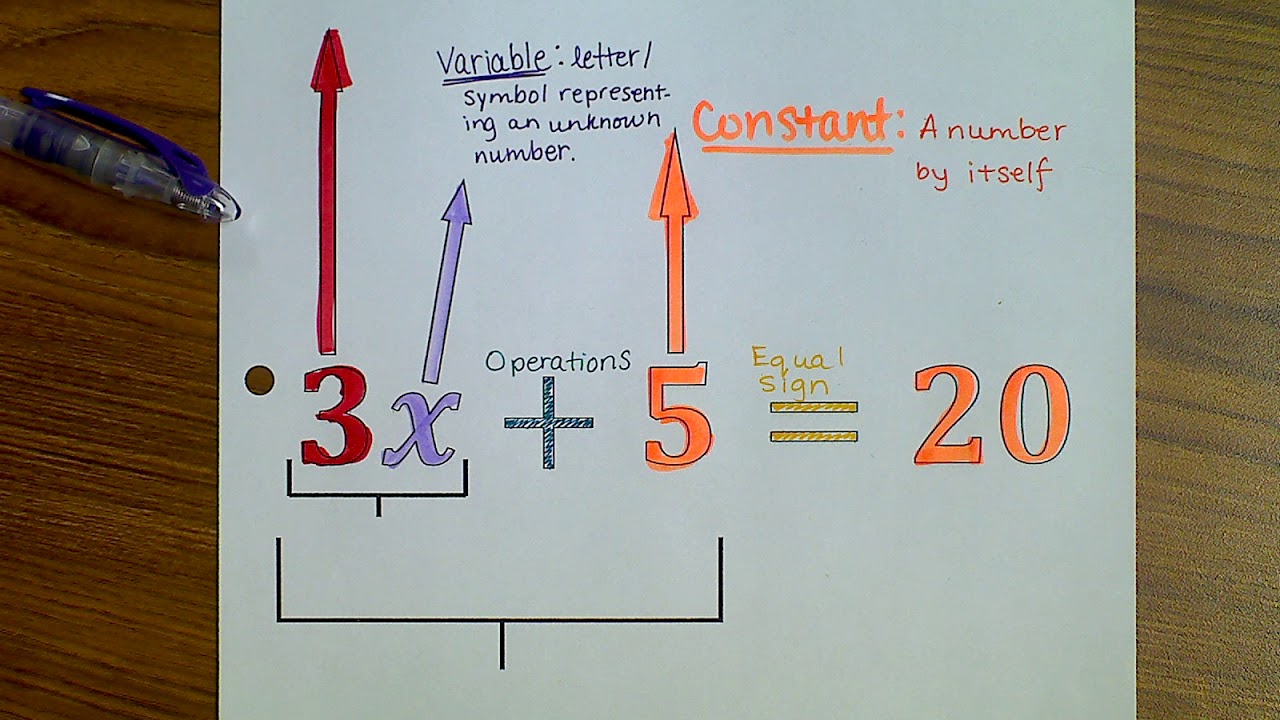 Variable: letter/
symbol represent-
ing an unknown
number.
Constant: A number
by itself
Operations
Equal
Sign
3x + 5 = 20